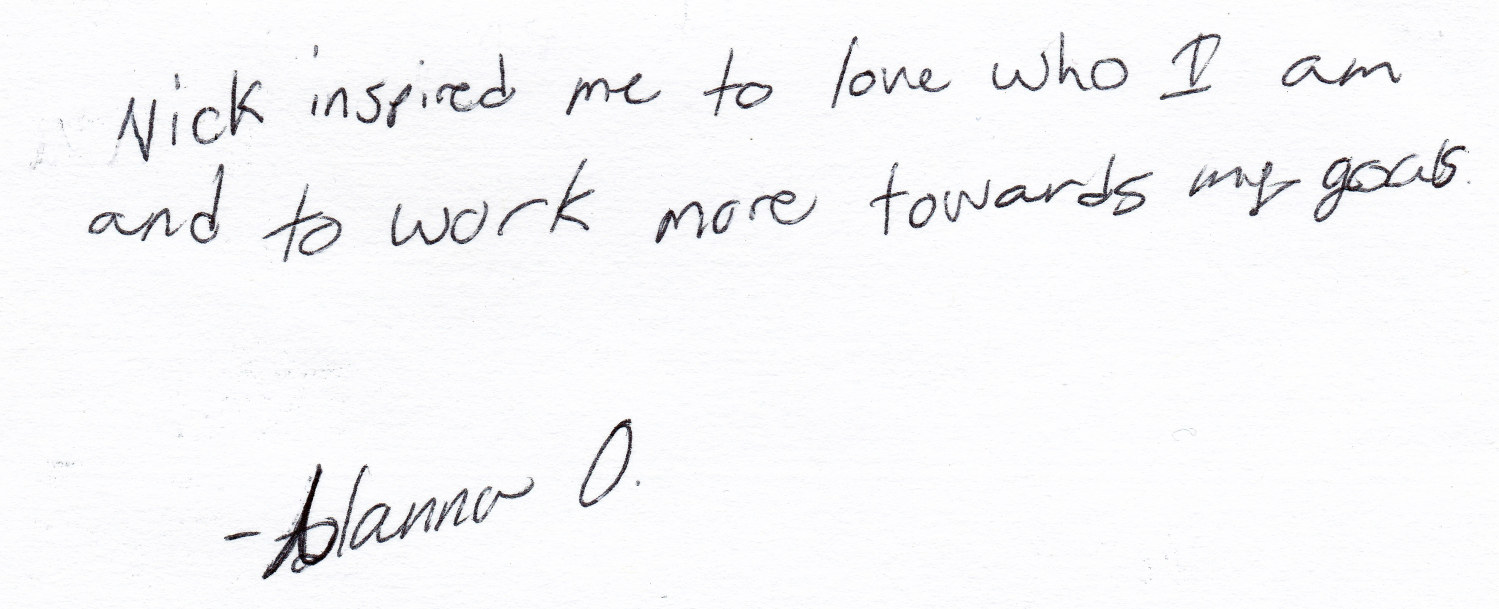 Nick inspired me to love who I am
and to work more towards my goals.
- Alanna O.